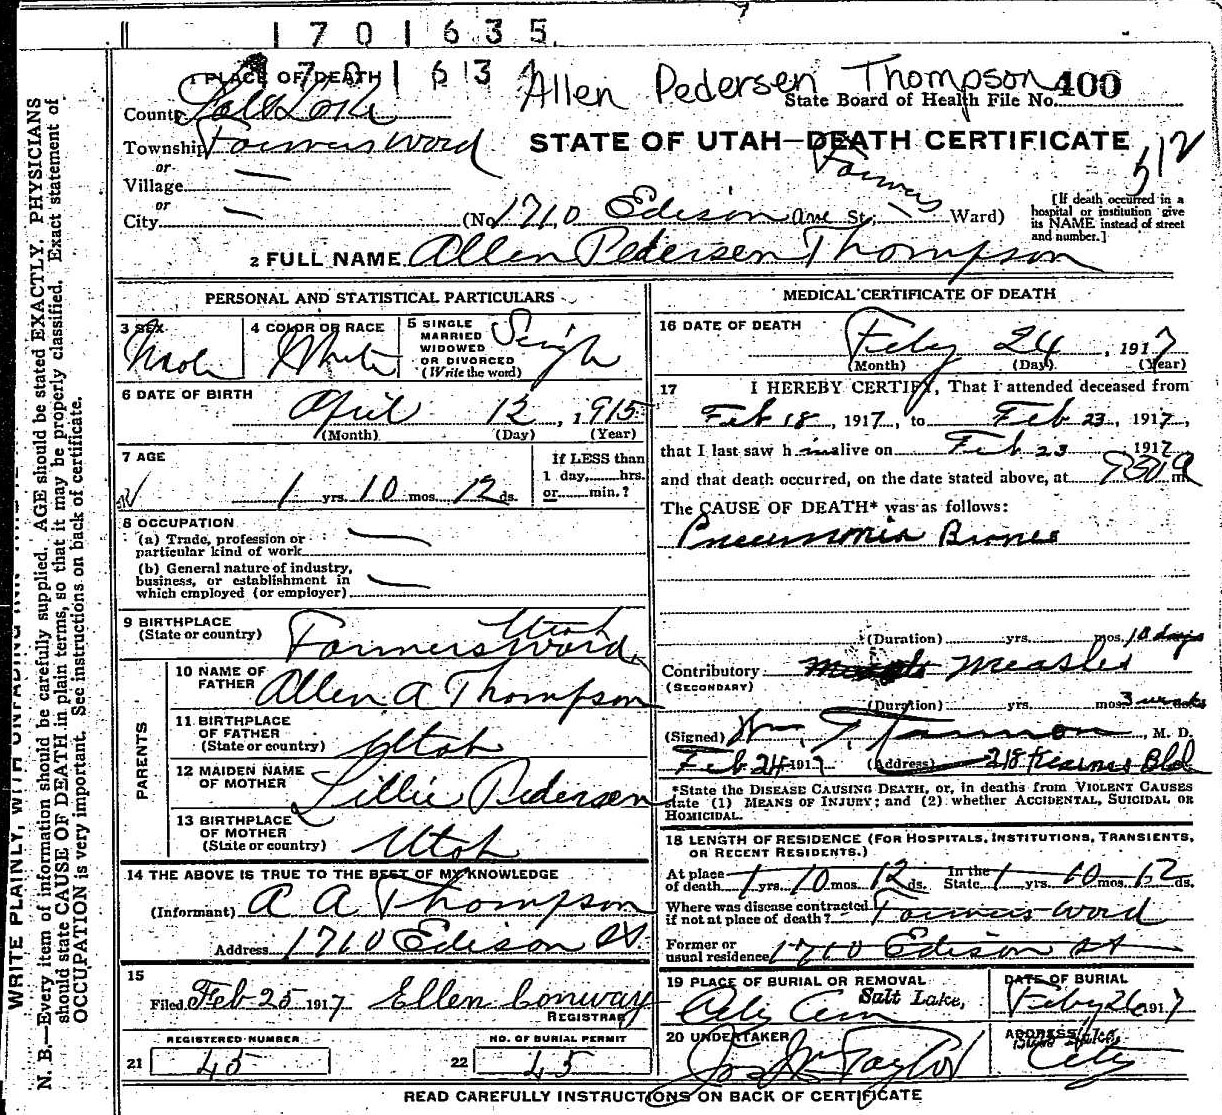 1701635
1 PLACE OF DEATH
Allen Pedersen Thompson
State Board of Health File No. 400
County Salt Lake
STATE OF UTAH—DEATH CERTIFICATE
512
Township Farmers Ward
or
Village —
or
City —
(No. 1710 Edison Ave St. Farmers Ward)
[If death occurred in a hospital or institution give its NAME instead of street and number.]
2 FULL NAME Allen Pedersen Thompson
PERSONAL AND STATISTICAL PARTICULARS
3 SEX
Male
4 COLOR OR RACE
White
5 SINGLE
MARRIED
WIDOWED
OR DIVORCED
(Write the word)
Single
6 DATE OF BIRTH
April 12, 1915
(Month) (Day) (Year)
7 AGE
1 yrs. 10 mos. 12 ds.
If LESS than
1 day, hrs.
or min.?
8 OCCUPATION
(a) Trade, profession or
particular kind of work —
(b) General nature of industry,
business, or establishment in
which employed (or employer) —
9 BIRTHPLACE
(State or country)
Utah
Farmers Ward
PARENTS
10 NAME OF
FATHER
Allen A Thompson
11 BIRTHPLACE
OF FATHER
(State or country)
Utah
12 MAIDEN NAME
OF MOTHER
Lillie Pedersen
13 BIRTHPLACE
OF MOTHER
(State or country)
Utah
14 THE ABOVE IS TRUE TO THE BEST OF MY KNOWLEDGE
(Informant) A A Thompson
Address 1710 Edison St
15
Filed Feb 25 1917 Ellen Conway
REGISTRAR
REGISTERED NUMBER
21 45
NO. OF BURIAL PERMIT
22 45
MEDICAL CERTIFICATE OF DEATH
16 DATE OF DEATH
Feby 24, 1917
(Month) (Day) (Year)
17 I HEREBY CERTIFY, That I attended deceased from
Feb 18, 1917, to Feb 23, 1917,
that I last saw him alive on Feb 23 1917
and that death occurred, on the date stated above, at 930 a m
The CAUSE OF DEATH* was as follows:
Pneumonia Bronco
(Duration) yrs. mos. 10 days
Contributory Measles
(SECONDARY)
(Duration) yrs. mos. 3 weeks
(Signed) Wm. T. Cannon, M. D.
Feb 24 1917 (Address) 218 Kearns Bld
*State the DISEASE CAUSING DEATH, or, in deaths from VIOLENT CAUSES
state (1) MEANS OF INJURY; and (2) whether ACCIDENTAL, SUICIDAL OR
HOMICIDAL.
18 LENGTH OF RESIDENCE (FOR HOSPITALS, INSTITUTIONS, TRANSIENTS,
OR RECENT RESIDENTS.)
At place
of death 1 yrs. 10 mos. 12 ds. In the State 1 yrs. 10 mos. 12 ds.
Where was disease contracted
if not at place of death? Farmers Ward
Former or
usual residence 1710 Edison St
19 PLACE OF BURIAL OR REMOVAL
City Cem Salt Lake,
DATE OF BURIAL
Feby 26 1917
20 UNDERTAKER
Jos Wm Taylor
ADDRESS
Salt Lake
City
READ CAREFULLY INSTRUCTIONS ON BACK OF CERTIFICATE
WRITE PLAINLY, WITH UNFADING INK
N. B.—Every item of information should be carefully supplied. AGE should be stated EXACTLY. PHYSICIANS
should state CAUSE OF DEATH in plain terms, so that it may be properly classified. Exact statement of
OCCUPATION is very important. See instructions on back of certificate.